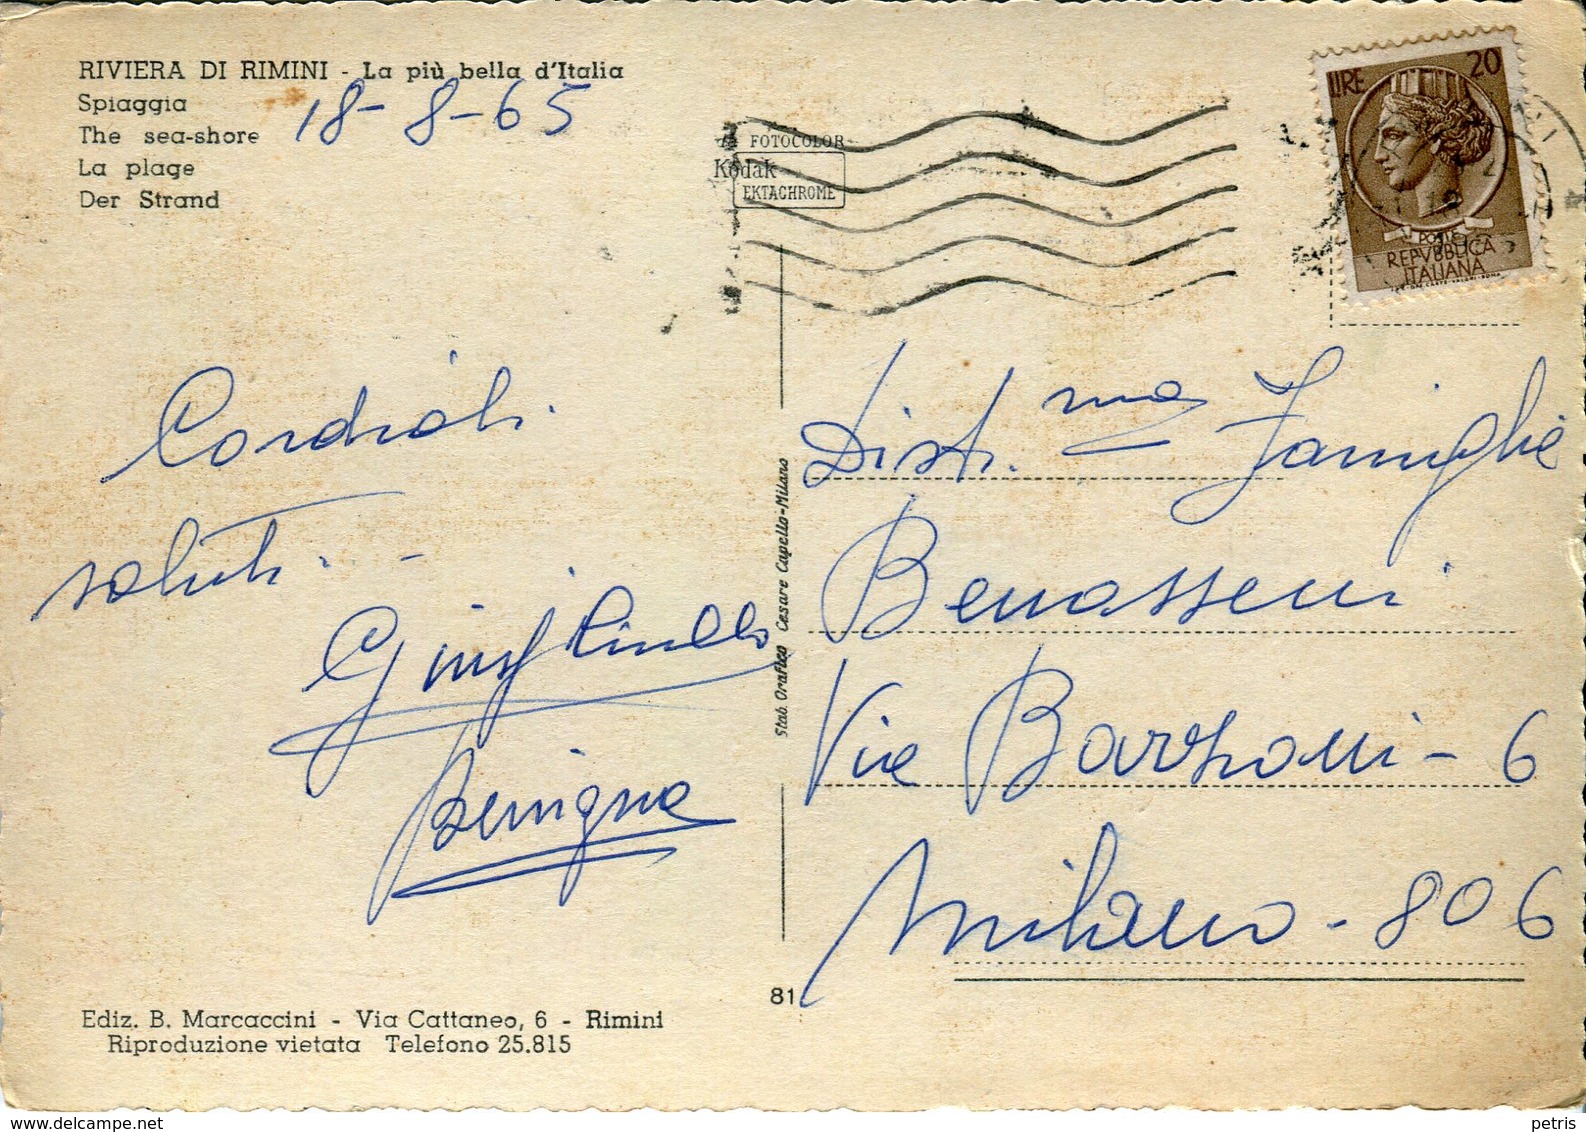 RIVIERA DI RIMINI - La più bella d'Italia
Spiaggia
The sea-shore
La plage
Der Strand
18-8-65
FOTOCOLOR
Kodak
EKTACHROME
LIRE 20
POSTE
REPVBBLICA
ITALIANA
Cordiali
saluti.-
Benigna
Stab. Grafico Cesare Capello-Milano
Dist.ma Famiglia
Benassení
Via Barzoni - 6
Milano - 806
81
Ediz. B. Marcaccini - Via Cattaneo, 6 - Rimini
Riproduzione vietata Telefono 25.815
delcampe.net
petris